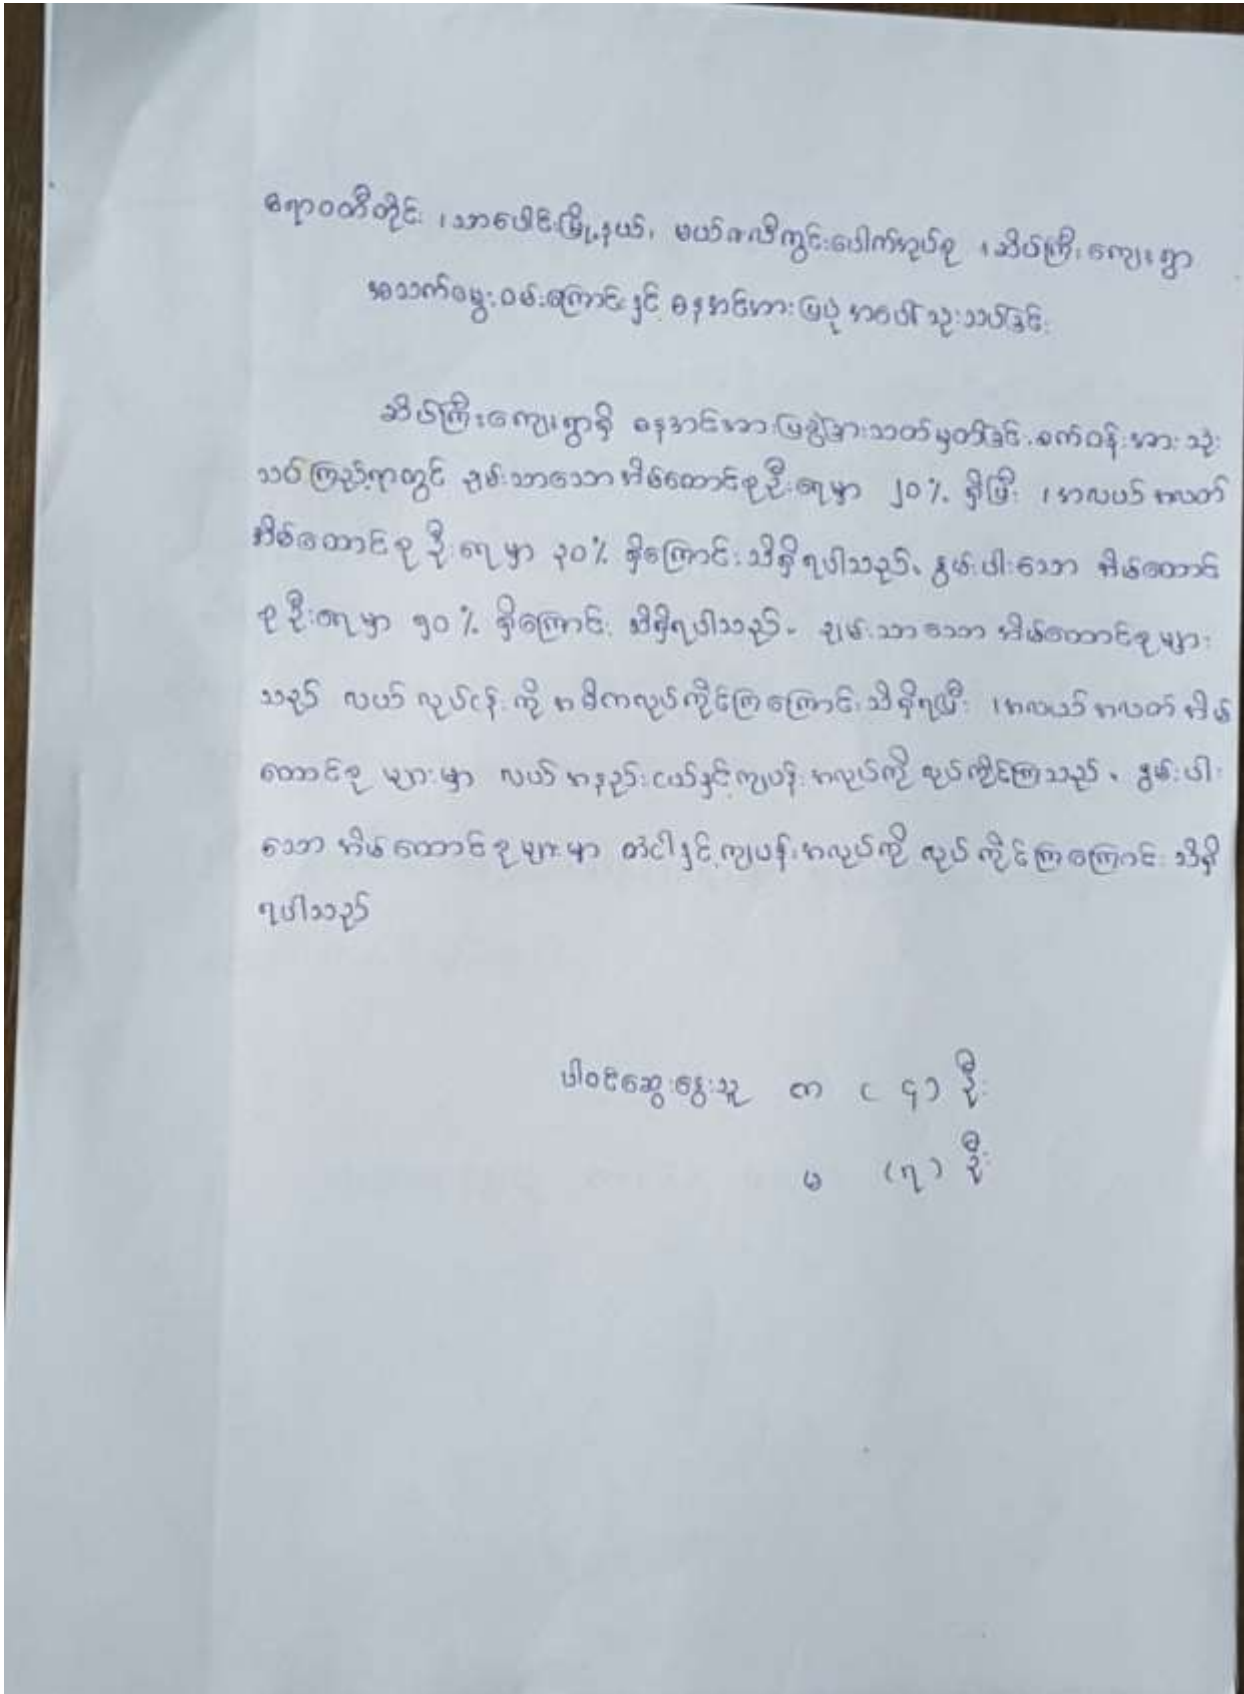 ဧရာဝတီတိုင်း ၊ သာပေါင်းမြို့နယ်၊ မယ်ဇလီကွင်းပေါက်အုပ်စု ၊ ဆိပ်ကြီးကျေးရွာ
အသက်မွေးဝမ်းကြောင်းနှင့် ဓနအင်အားပြပုံ အပေါ် သုံးသပ်ခြင်း
ဆိပ်ကြီးကျေးရွာရှိ ဓနအင်အားပြခွဲခြားသတ်မှတ်ခြင်း စက်ဝန်းအား သုံး
သပ်ကြည့်ရာတွင် ချမ်းသာသောအိမ်ထောင်စုဦးရေမှာ ၂၀% ရှိပြီး ၊ အလယ်အလတ်
အိမ်ထောင်စုဦးရေမှာ ၃၀% ရှိကြောင်းသိရှိရပါသည်၊ နွမ်းပါးသော အိမ်ထောင်
စုဦးရေမှာ ၅၀% ရှိကြောင်း သိရှိရပါသည်။ ချမ်းသာသော အိမ်ထောင်စုများ
သည် လယ်လုပ်ငန်းကို အဓိကလုပ်ကိုင်ကြကြောင်းသိရှိရပြီး ၊ အလယ်အလတ်အိမ်
ထောင်စုများမှာ လယ်အနည်းငယ်နှင့်ကျပန်းအလုပ်ကို လုပ်ကိုင်ကြသည်၊ နွမ်းပါး
သောအိမ်ထောင်စုများမှာ တံငါနှင့်ကျပန်းအလုပ်ကို လုပ်ကိုင်ကြကြောင်း သိရှိ
ရပါသည်
ပါဝင်ဆွေးနွေးသူ ကျား ( ၄ ) ဦး
မ (၇) ဦး